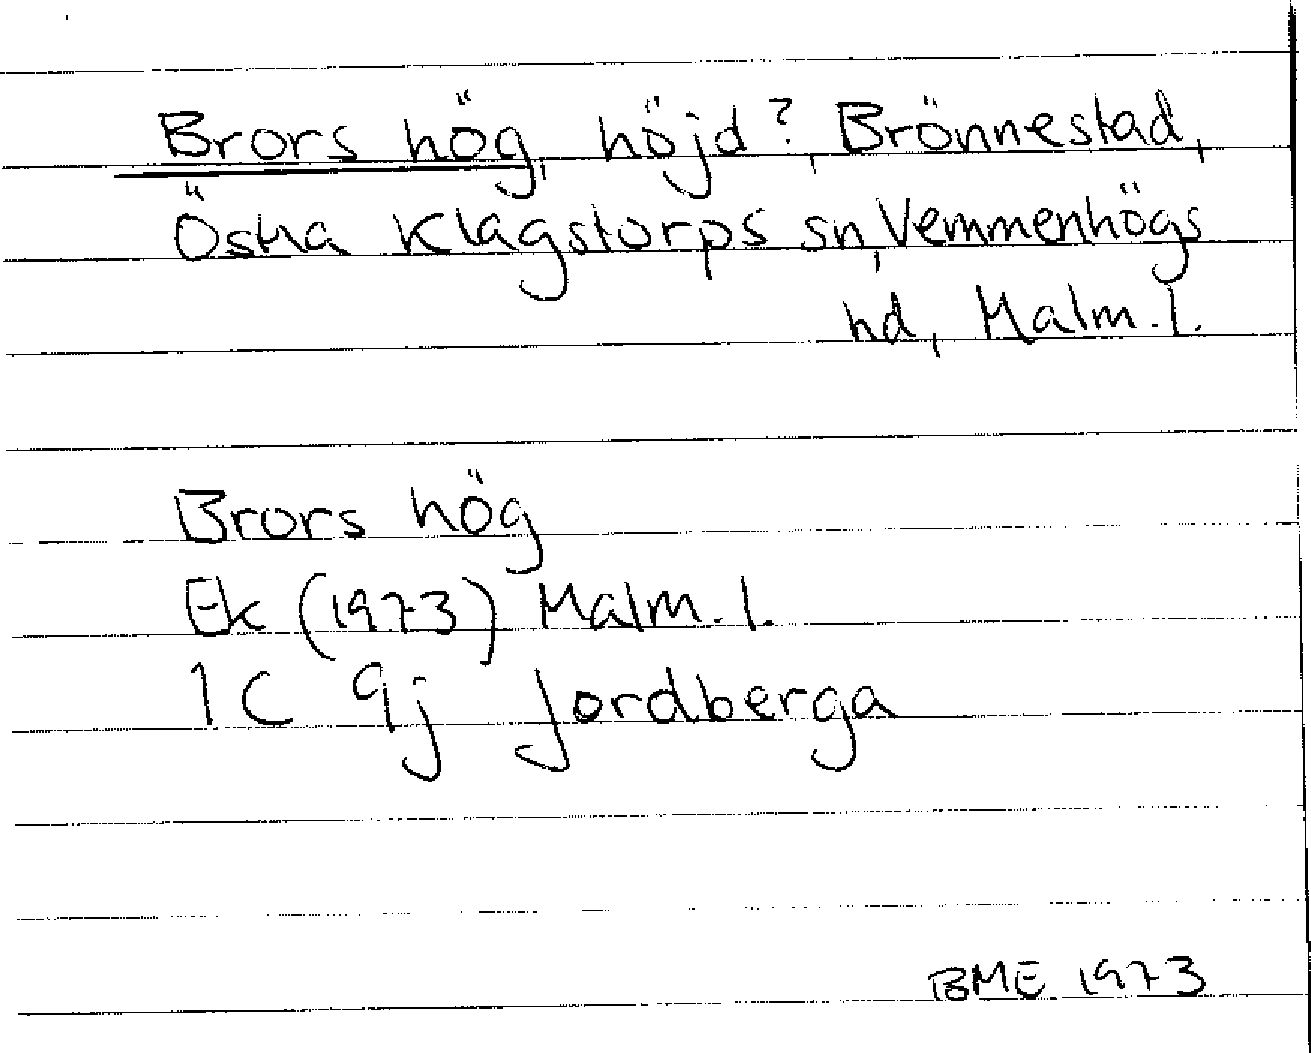 Brors hög, höjd?, Brönnestad,
Östra Klagstorps sn, Vemmenhögs
hd, Malm. l.
Brors hög
Ek (1973) Malm. l.
1C 9j Jordberga
BME 1973